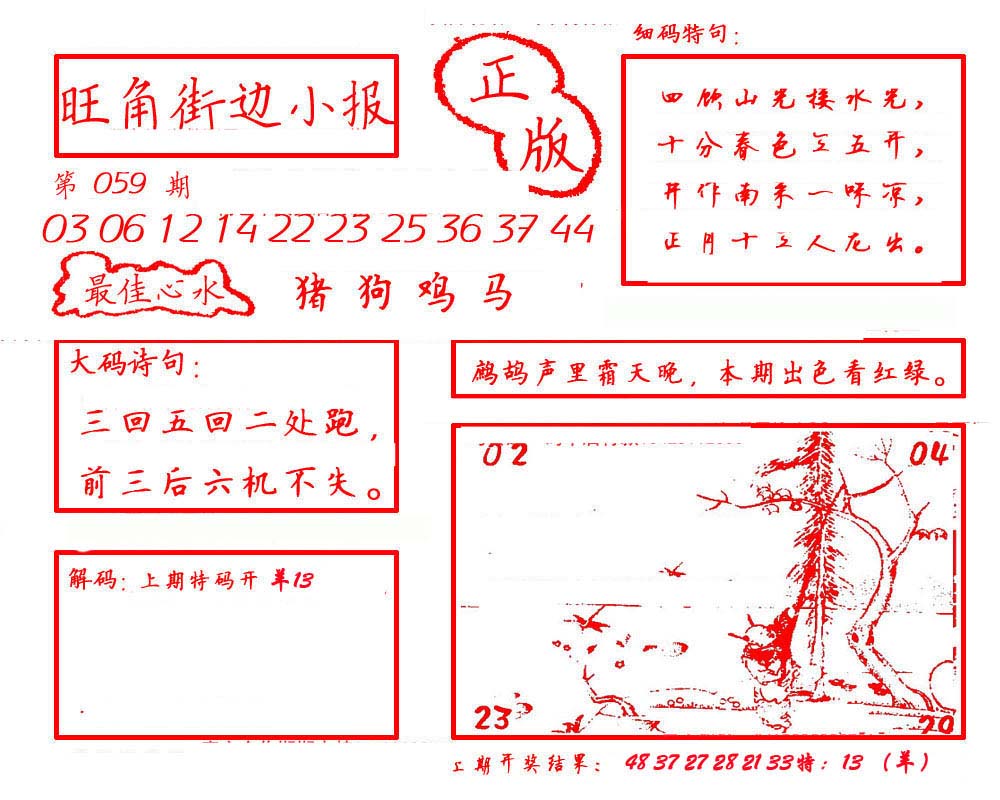 细码特句：
旺角街边小报
正版
四顾山光接水光，
十分春色
五开，
一味凉，
正月十
人
出。
第 059 期
03 06 12 14 22 23 25 36 37 44
最佳心水
猪 狗 鸡 马
大码诗句：
三回五回二处跑，
前三后六机不失。
鹧鸪声里霜天晚，本期出色看红绿。
02
04
23
20
解码：上期特码开 羊13
上期开奖结果： 48 37 27 28 21 33特：13 （羊）